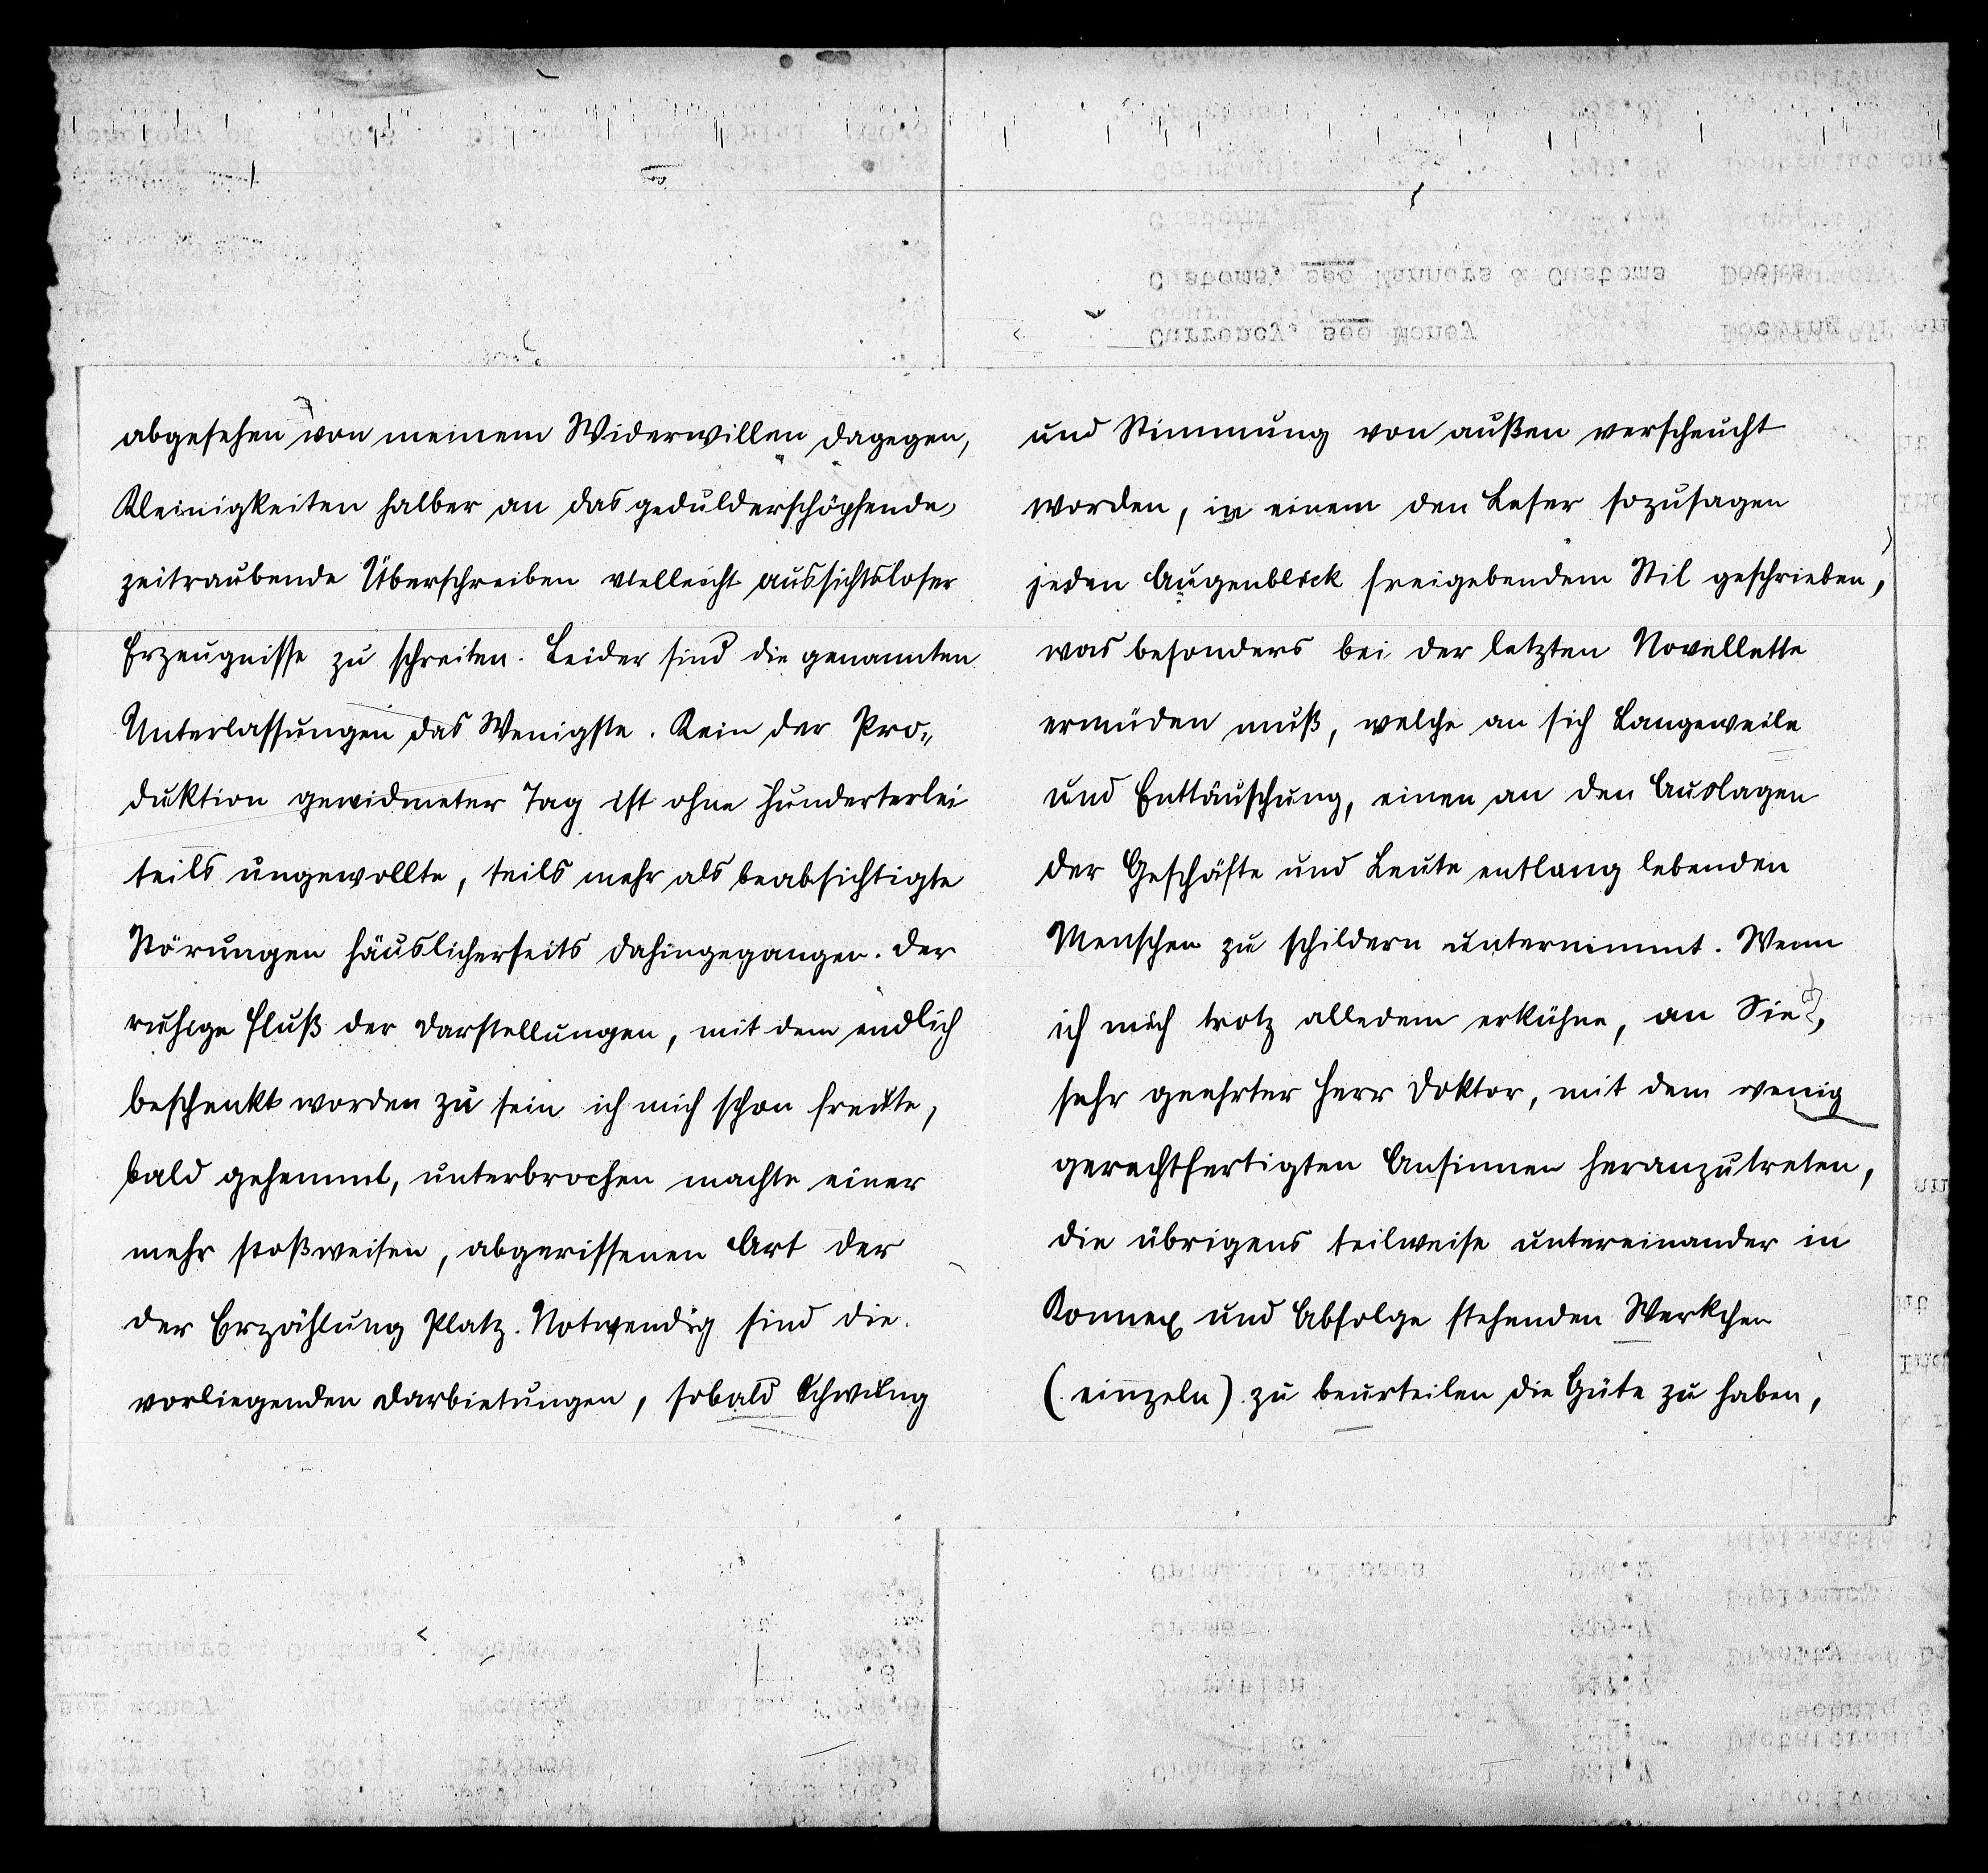 abgesehen von meinem Widerwillen dagegen,
Kleinigkeiten halber an das gedulderschöpfende,
zeitraubende Überschreiben vielleicht aussichtsloser
Erzeugnisse zu schreiten. Leider sind die genannten
Unterlassungen das Wenigste. Kein der Pro„
duktion gewidmeter Tag ist ohne hunderterlei
teils ungewollte, teils mehr als beabsichtigte
Störungen häuslicherseits dahingegangen. Der
ruhige Fluß der Darstellungen, mit dem endlich
beschenkt worden zu sein ich mich schon freute,
bald gehemmt, unterbrochen machte einer
mehr stoßweisen, abgerissenen Art der
der Erzählung Platz. Notwendig sind die
vorliegenden Darbietungen, sobald Schwung
und Stimmung von außen verscheucht
worden, in einem den Leser sozusagen
jeden Augenblick freigebendem Stil geschrieben,
was besonders bei der letzten Novellette
ermüden muß, welche an sich Langeweile
und Enttäuschung, einen an den Auslagen
der Geschäfte und Leute entlang lebenden
Menschen zu schildern unternimmt. Wenn
ich mich trotz alledem erkühne, an Sie,
sehr geehrter Herr Doktor, mit dem wenig
gerechtfertigten Ansinnen heranzutreten,
die übrigens teilweise untereinander in
Konnex und Abfolge stehenden Werkchen
(einzeln) zu beurteilen die Güte zu haben,
Customs, see Manners & Customs
Currency, see Money